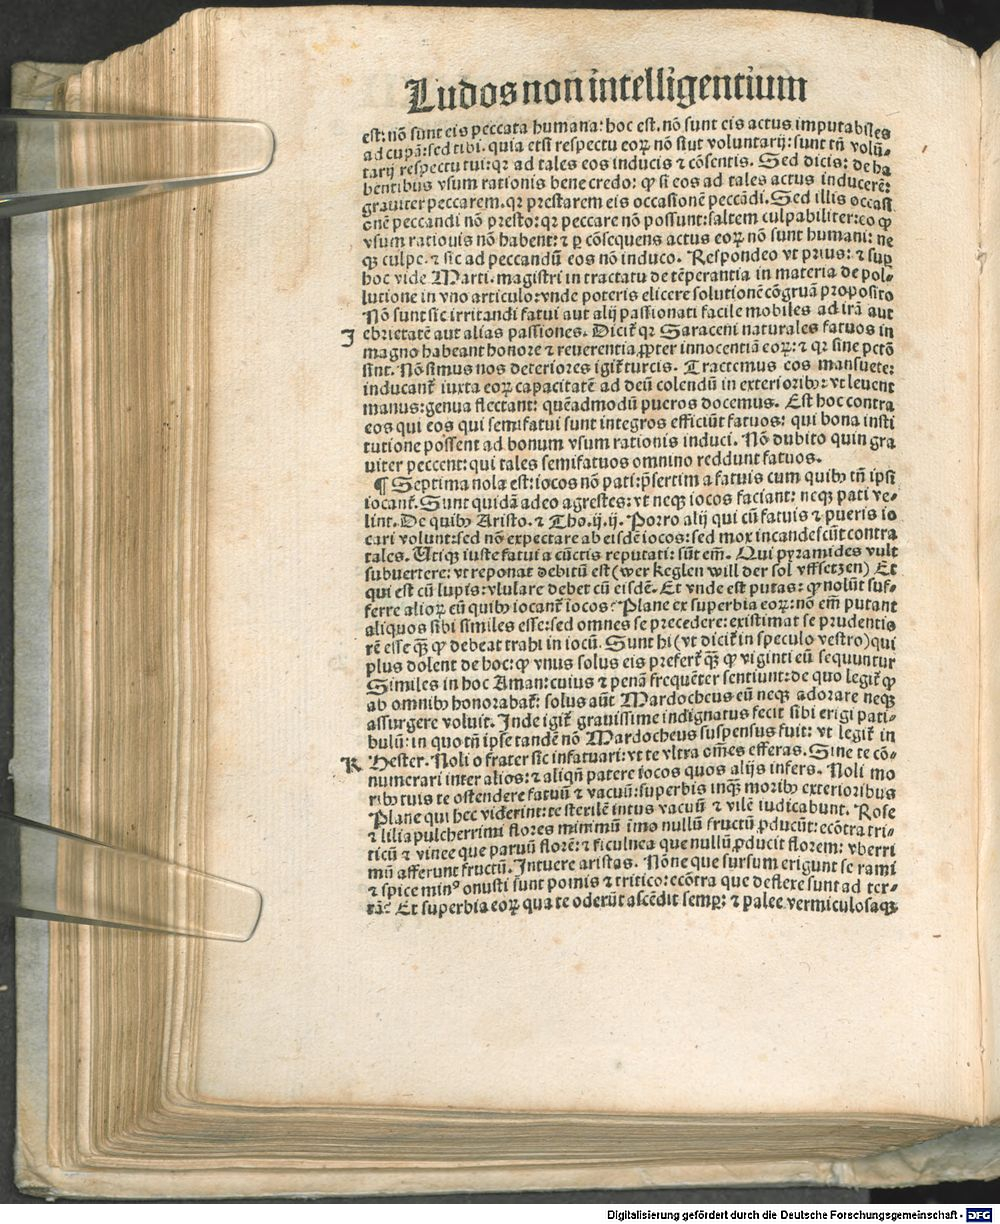 Ludos non intelligentium
est: nō sunt eis peccata humana: hoc est. nō sunt eis actus imputabiles
ad cupā: sed tibi. quia etsi respectu eoꝝ nō siut voluntarij: sunt tñ volū-
tarij respectu tui: qꝛ ad tales eos inducis ⁊ cōsentis. Sed dicis: de ha
bentibus vsum rationis bene credo: ꝙ si eos ad tales actus inducerē:
grauiter peccarem. qꝛ prestarem eis occasionē peccādi. Sed illis occasi
onē peccandi nō presto: qꝛ peccare nō possunt: saltem culpabiliter: eo ꝙ
vsum rationis nō habent: ⁊ ꝑ cōsequens actus eoꝝ nō sunt humani: ne
qꝫ culpe. ⁊ sic ad peccandū eos nō induco. Respondeo vt prius: ⁊ suꝑ
hoc vide Marti. magistri in tractatu de tēperantia in materia de pol-
lutione in vno articulo: vnde poteris elicere solutionē cōgruā proposito
Nō sunt sic irritandi fatui aut alij passionati facile mobiles ad irā aut
J ebrietatē aut alias passiones. Dicit̃ qꝛ Saraceni naturales fatuos in
magno habeant honore ⁊ reuerentia ꝓpter innocentiā eoꝝ: ⁊ qꝛ sine pctō
sint. Nō simus nos deteriores igit̃ turcis. Tractemus eos mansuete:
inducant̃ iuxta eoꝝ capacitatē ad deū colendū in exterioribꝰ: vt leuent
manus: genua flectant: quēadmodū pueros docemus. Est hoc contra
eos qui eos qui semifatui sunt integros efficiūt fatuos: qui bona insti
tutione possent ad bonum vsum rationis induci. Nō dubito quin gra
uiter peccent: qui tales semifatuos omnino reddunt fatuos.
¶ Septima nola est: iocos nō pati: p̄sertim a fatuis cum quibꝰ tñ ipsi
iocant̃. Sunt quidā adeo agrestes: vt neqꝫ iocos faciant: neqꝫ pati ve-
lint. De quibꝰ Aristo. ⁊ Tho. ij. ij. Porro alij qui cū fatuis ⁊ pueris io
cari volunt: sed nō expectare ab eisdē iocos: sed mox incandescūt contra
tales. Utiqꝫ iuste fatui a cūctis reputati: sūt em̄. Qui pyramides vult
subuertere: vt reponat debitū est (wer keglen will der sol vffsetzen) Et
qui est cū lupis: vlulare debet cū eisdē. Et vnde est putas: ꝙ nolūt suf-
ferre alioꝝ cū quibꝰ iocant̃ iocos? Plane ex superbia eoꝝ: nō em̄ putant
aliquos sibi similes esse: sed omnes se precedere: existimāt se prudentio
rē esse qꝫ̄ ꝙ debeat trahi in iocū. Sunt hi (vt dicit̃ in speculo vestro) qui
plus dolent de hoc: ꝙ vnus solus eis prefert̃ qꝫ̄ ꝙ viginti eū sequuntur
Similes in hoc Aman: cuius ⁊ penā frequēter sentiunt: de quo legit̃ ꝙ
ab omnibꝰ honorabat̃: solus aūt Mardocheus eū neqꝫ adorare neqꝫ
assurgere voluit. Inde igit̃ grauissime indignatus fecit sibi erigi pati-
bulū: in quo tñ ipse tandē nō Mardocheus suspensus fuit: vt legit̃ in
K Hester. Noli o frater sic infatuari: vt te vltra oīnes efferas. Sine te cō-
numerari inter alios: ⁊ aliqñ patere iocos quos alijs infers. Noli mo
ribꝰ tuis te ostendere fatuū ⁊ vacuū: superbis inqꝫ moribꝰ exterioribus
Plane qui hec viderint: te sterilē intus vacuū ⁊ vilē iudicabunt. Rose
⁊ lilia pulcherrimi flores minimū imo nullū fructū ꝓducūt: ecōtra tri-
ticū ⁊ vinee que paruū florē: ⁊ ficulnea que nullū ꝓducit florem: vberri
mū afferunt fructū. Intuere aristas. Nōne que sursum erigunt se rami
⁊ spice minꝰ onusti sunt pomis ⁊ tritico: ecōtra que deflexe sunt ad ter-
rā? Et superbia eoꝝ qua te oderūt ascēdit semꝑ: ⁊ palee vermiculosaqꝫ
Digitalisierung gefördert durch die Deutsche Forschungsgemeinschaft - DFG